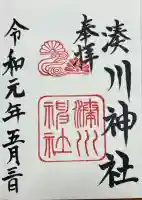 奉拝
湊川神社
湊川
神社
令和元年五月三日